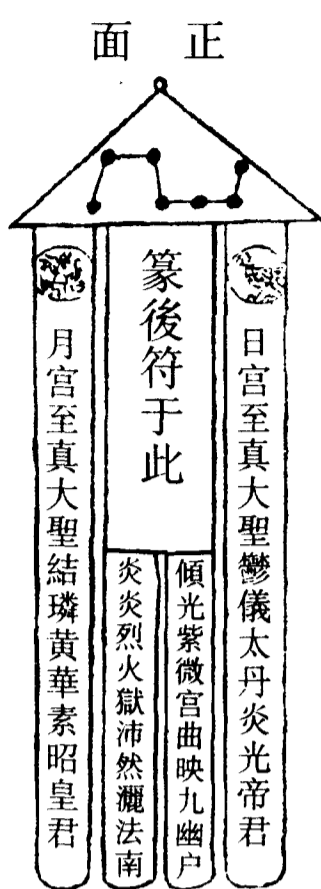 正面
日宮至真大聖鬱儀太丹炎光帝君
篆後符于此
傾光紫微宮曲映九幽户
炎炎烈火獄沛然灑法南
月宮至真大聖結璘黄華素昭皇君